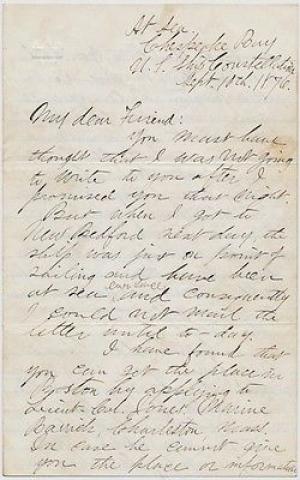 At Sea.
Chespeake Bay
U.S. Ship Constellation
Sept. 18th. 1876.
My dear Friend:
You must have
thought that I was not going
to write to you after I
promised you that night.
But when I got to
New Bedford next day the
ship was just on point of
sailing and have been
at sea ever since and consequently
I could not mail the
letter until to-day.
I have found that
you can get the place in
Boston by applying to
Lieut. Col. Jones, Marine
Barrick, Charleston, Mass.
In case he cannot give
you the place or information